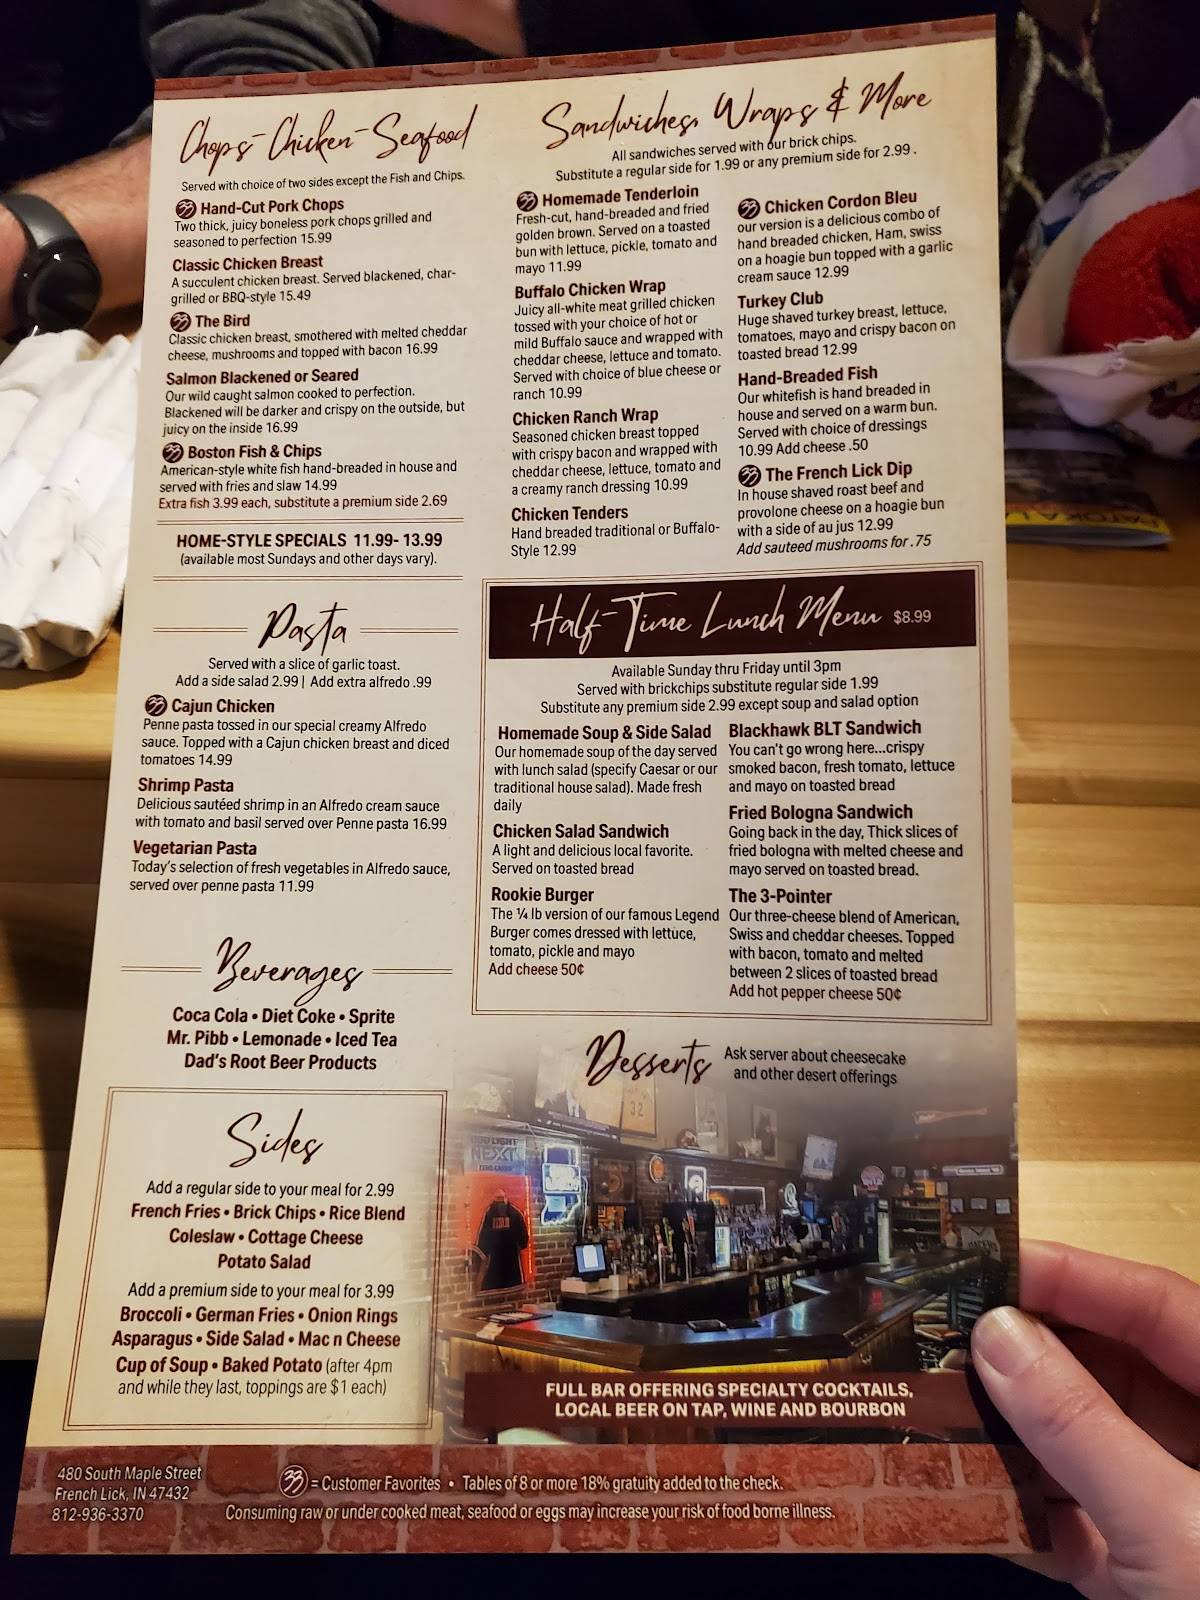 Chops-Chicken-Seafood
Served with choice of two sides except the Fish and Chips.
33 Hand-Cut Pork Chops
Two thick, juicy boneless pork chops grilled and
seasoned to perfection 15.99
Classic Chicken Breast
A succulent chicken breast. Served blackened, char-
grilled or BBQ-style 15.49
33 The Bird
Classic chicken breast, smothered with melted cheddar
cheese, mushrooms and topped with bacon 16.99
Salmon Blackened or Seared
Our wild caught salmon cooked to perfection.
Blackened will be darker and crispy on the outside, but
juicy on the inside 16.99
33 Boston Fish & Chips
American-style white fish hand-breaded in house and
served with fries and slaw 14.99
Extra fish 3.99 each, substitute a premium side 2.69
HOME-STYLE SPECIALS 11.99- 13.99
(available most Sundays and other days vary).
Pasta
Served with a slice of garlic toast.
Add a side salad 2.99 | Add extra alfredo .99
33 Cajun Chicken
Penne pasta tossed in our special creamy Alfredo
sauce. Topped with a Cajun chicken breast and diced
tomatoes 14.99
Shrimp Pasta
Delicious sautéed shrimp in an Alfredo cream sauce
with tomato and basil served over Penne pasta 16.99
Vegetarian Pasta
Today's selection of fresh vegetables in Alfredo sauce,
served over penne pasta 11.99
Beverages
Coca Cola • Diet Coke • Sprite
Mr. Pibb • Lemonade • Iced Tea
Dad's Root Beer Products
Sides
Add a regular side to your meal for 2.99
French Fries • Brick Chips • Rice Blend
Coleslaw • Cottage Cheese
Potato Salad
Add a premium side to your meal for 3.99
Broccoli • German Fries • Onion Rings
Asparagus • Side Salad • Mac n Cheese
Cup of Soup • Baked Potato (after 4pm
and while they last, toppings are $1 each)
Sandwiches, Wraps & More
All sandwiches served with our brick chips.
Substitute a regular side for 1.99 or any premium side for 2.99 .
33 Homemade Tenderloin
Fresh-cut, hand-breaded and fried
golden brown. Served on a toasted
bun with lettuce, pickle, tomato and
mayo 11.99
Buffalo Chicken Wrap
Juicy all-white meat grilled chicken
tossed with your choice of hot or
mild Buffalo sauce and wrapped with
cheddar cheese, lettuce and tomato.
Served with choice of blue cheese or
ranch 10.99
Chicken Ranch Wrap
Seasoned chicken breast topped
with crispy bacon and wrapped with
cheddar cheese, lettuce, tomato and
a creamy ranch dressing 10.99
Chicken Tenders
Hand breaded traditional or Buffalo-
Style 12.99
33 Chicken Cordon Bleu
our version is a delicious combo of
hand breaded chicken, Ham, swiss
on a hoagie bun topped with a garlic
cream sauce 12.99
Turkey Club
Huge shaved turkey breast, lettuce,
tomatoes, mayo and crispy bacon on
toasted bread 12.99
Hand-Breaded Fish
Our whitefish is hand breaded in
house and served on a warm bun.
Served with choice of dressings
10.99 Add cheese .50
33 The French Lick Dip
In house shaved roast beef and
provolone cheese on a hoagie bun
with a side of au jus 12.99
Add sauteed mushrooms for .75
Half-Time Lunch Menu $8.99
Available Sunday thru Friday until 3pm
Served with brickchips substitute regular side 1.99
Substitute any premium side 2.99 except soup and salad option
Homemade Soup & Side Salad
Our homemade soup of the day served
with lunch salad (specify Caesar or our
traditional house salad). Made fresh
daily
Chicken Salad Sandwich
A light and delicious local favorite.
Served on toasted bread
Rookie Burger
The ¼ lb version of our famous Legend
Burger comes dressed with lettuce,
tomato, pickle and mayo
Add cheese 50¢
Blackhawk BLT Sandwich
You can't go wrong here...crispy
smoked bacon, fresh tomato, lettuce
and mayo on toasted bread
Fried Bologna Sandwich
Going back in the day, Thick slices of
fried bologna with melted cheese and
mayo served on toasted bread.
The 3-Pointer
Our three-cheese blend of American,
Swiss and cheddar cheeses. Topped
with bacon, tomato and melted
between 2 slices of toasted bread
Add hot pepper cheese 50¢
Desserts
Ask server about cheesecake
and other desert offerings
32
BUD LIGHT
NEXT
FULL BAR OFFERING SPECIALTY COCKTAILS,
LOCAL BEER ON TAP, WINE AND BOURBON
480 South Maple Street
French Lick, IN 47432
812-936-3370
33 = Customer Favorites • Tables of 8 or more 18% gratuity added to the check.
Consuming raw or under cooked meat, seafood or eggs may increase your risk of food borne illness.